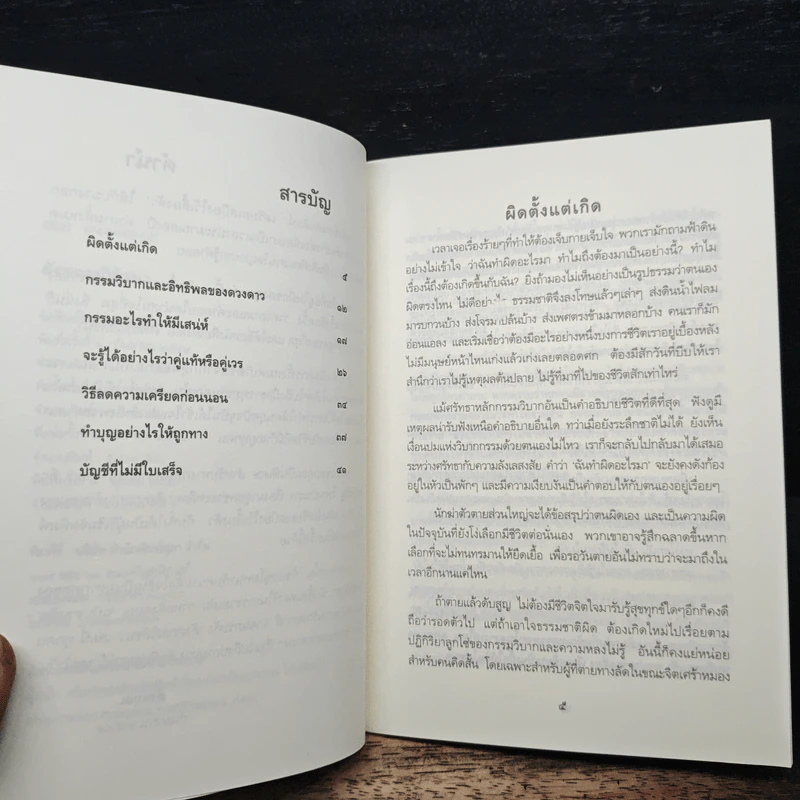 สารบัญ
ผิดตั้งแต่เกิด ๕
กรรมวิบากและอิทธิพลของดวงดาว ๑๒
กรรมอะไรทำให้มีเสน่ห์ ๑๗
จะรู้ได้อย่างไรว่าคู่แท้หรือคู่เวร ๒๖
วิธีลดความเครียดก่อนนอน ๓๔
ทำบุญอย่างไรให้ถูกทาง ๓๗
บัญชีที่ไม่มีใบเสร็จ ๔๑
ผิดตั้งแต่เกิด
เวลาเจอเรื่องร้ายๆที่ทำให้ต้องเจ็บกายเจ็บใจ พวกเรามักถามฟ้าดิน
อย่างไม่เข้าใจ ว่าฉันทำผิดอะไรมา ทำไมถึงต้องมาเป็นอย่างนี้? ทำไม
เรื่องนี้ถึงต้องเกิดขึ้นกับฉัน? ยิ่งถ้ามองไม่เห็นอย่างเป็นรูปธรรมว่าตนเอง
ผิดตรงไหน ไม่ดีอย่างไร ธรรมชาติจึงลงโทษแล้วๆเล่าๆ ส่งดินน้ำไฟลม
มารบกวนบ้าง ส่งโจรมาปล้นบ้าง ส่งเพศตรงข้ามมาหลอกบ้าง คนเราก็มัก
อ่อนแอลง และเริ่มเชื่อว่าต้องมีอะไรอย่างหนึ่งบงการชีวิตเราอยู่เบื้องหลัง
ไม่มีมนุษย์หน้าไหนเก่งแล้วเก่งเลยตลอดศก ต้องมีสักวันที่บีบให้เรา
สำนึกว่าเราไม่รู้เหตุผลต้นปลาย ไม่รู้ที่มาที่ไปของชีวิตสักเท่าไหร่
แม้ศรัทธาหลักกรรมวิบากอันเป็นคำอธิบายชีวิตที่ดีที่สุด ฟังดูมี
เหตุผลน่ารับฟังเหนือคำอธิบายอื่นใด ทว่าเมื่อยังระลึกชาติไม่ได้ ยังเห็น
เงื่อนปมแห่งวิบากกรรมด้วยตนเองไม่ไหว เราก็จะกลับไปกลับมาได้เสมอ
ระหว่างศรัทธากับความลังเลสงสัย คำว่า 'ฉันทำผิดอะไรมา' จะยังคงดังก้อง
อยู่ในหัวเป็นพักๆ และมีความเงียบงันเป็นคำตอบให้กับตนเองอยู่เรื่อยๆ
นักฆ่าตัวตายส่วนใหญ่จะได้ข้อสรุปว่าตนผิดเอง และเป็นความผิด
ในปัจจุบันที่ยังโง่เลือกมีชีวิตต่อนั่นเอง พวกเขาอาจรู้สึกฉลาดขึ้นหาก
เลือกที่จะไม่ทนทรมานให้ยืดเยื้อ เพื่อรอวันตายอันไม่ทราบว่าจะมาถึงใน
เวลาอีกนานแค่ไหน
ถ้าตายแล้วดับสูญ ไม่ต้องมีชีวิตจิตใจมารับรู้สุขทุกข์ใดๆอีกก็คงดี
ถือว่ารอดตัวไป แต่ถ้าเอาใจธรรมชาติผิด ต้องเกิดใหม่ไปเรื่อยตาม
ปฏิกิริยาลูกโซ่ของกรรมวิบากและความหลงไม่รู้ อันนี้ก็คงแย่หน่อย
สำหรับคนคิดสั้น โดยเฉพาะสำหรับผู้ที่ตายทางลัดในขณะจิตเศร้าหมอง
๕